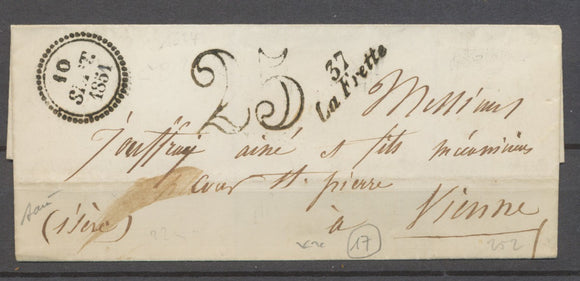 10
SEPT.
1851
25
37
La Frette
Messieurs
Jouffray ainé et fils mécaniciens
cour St. pierre
(isère) à Vienne
17
252